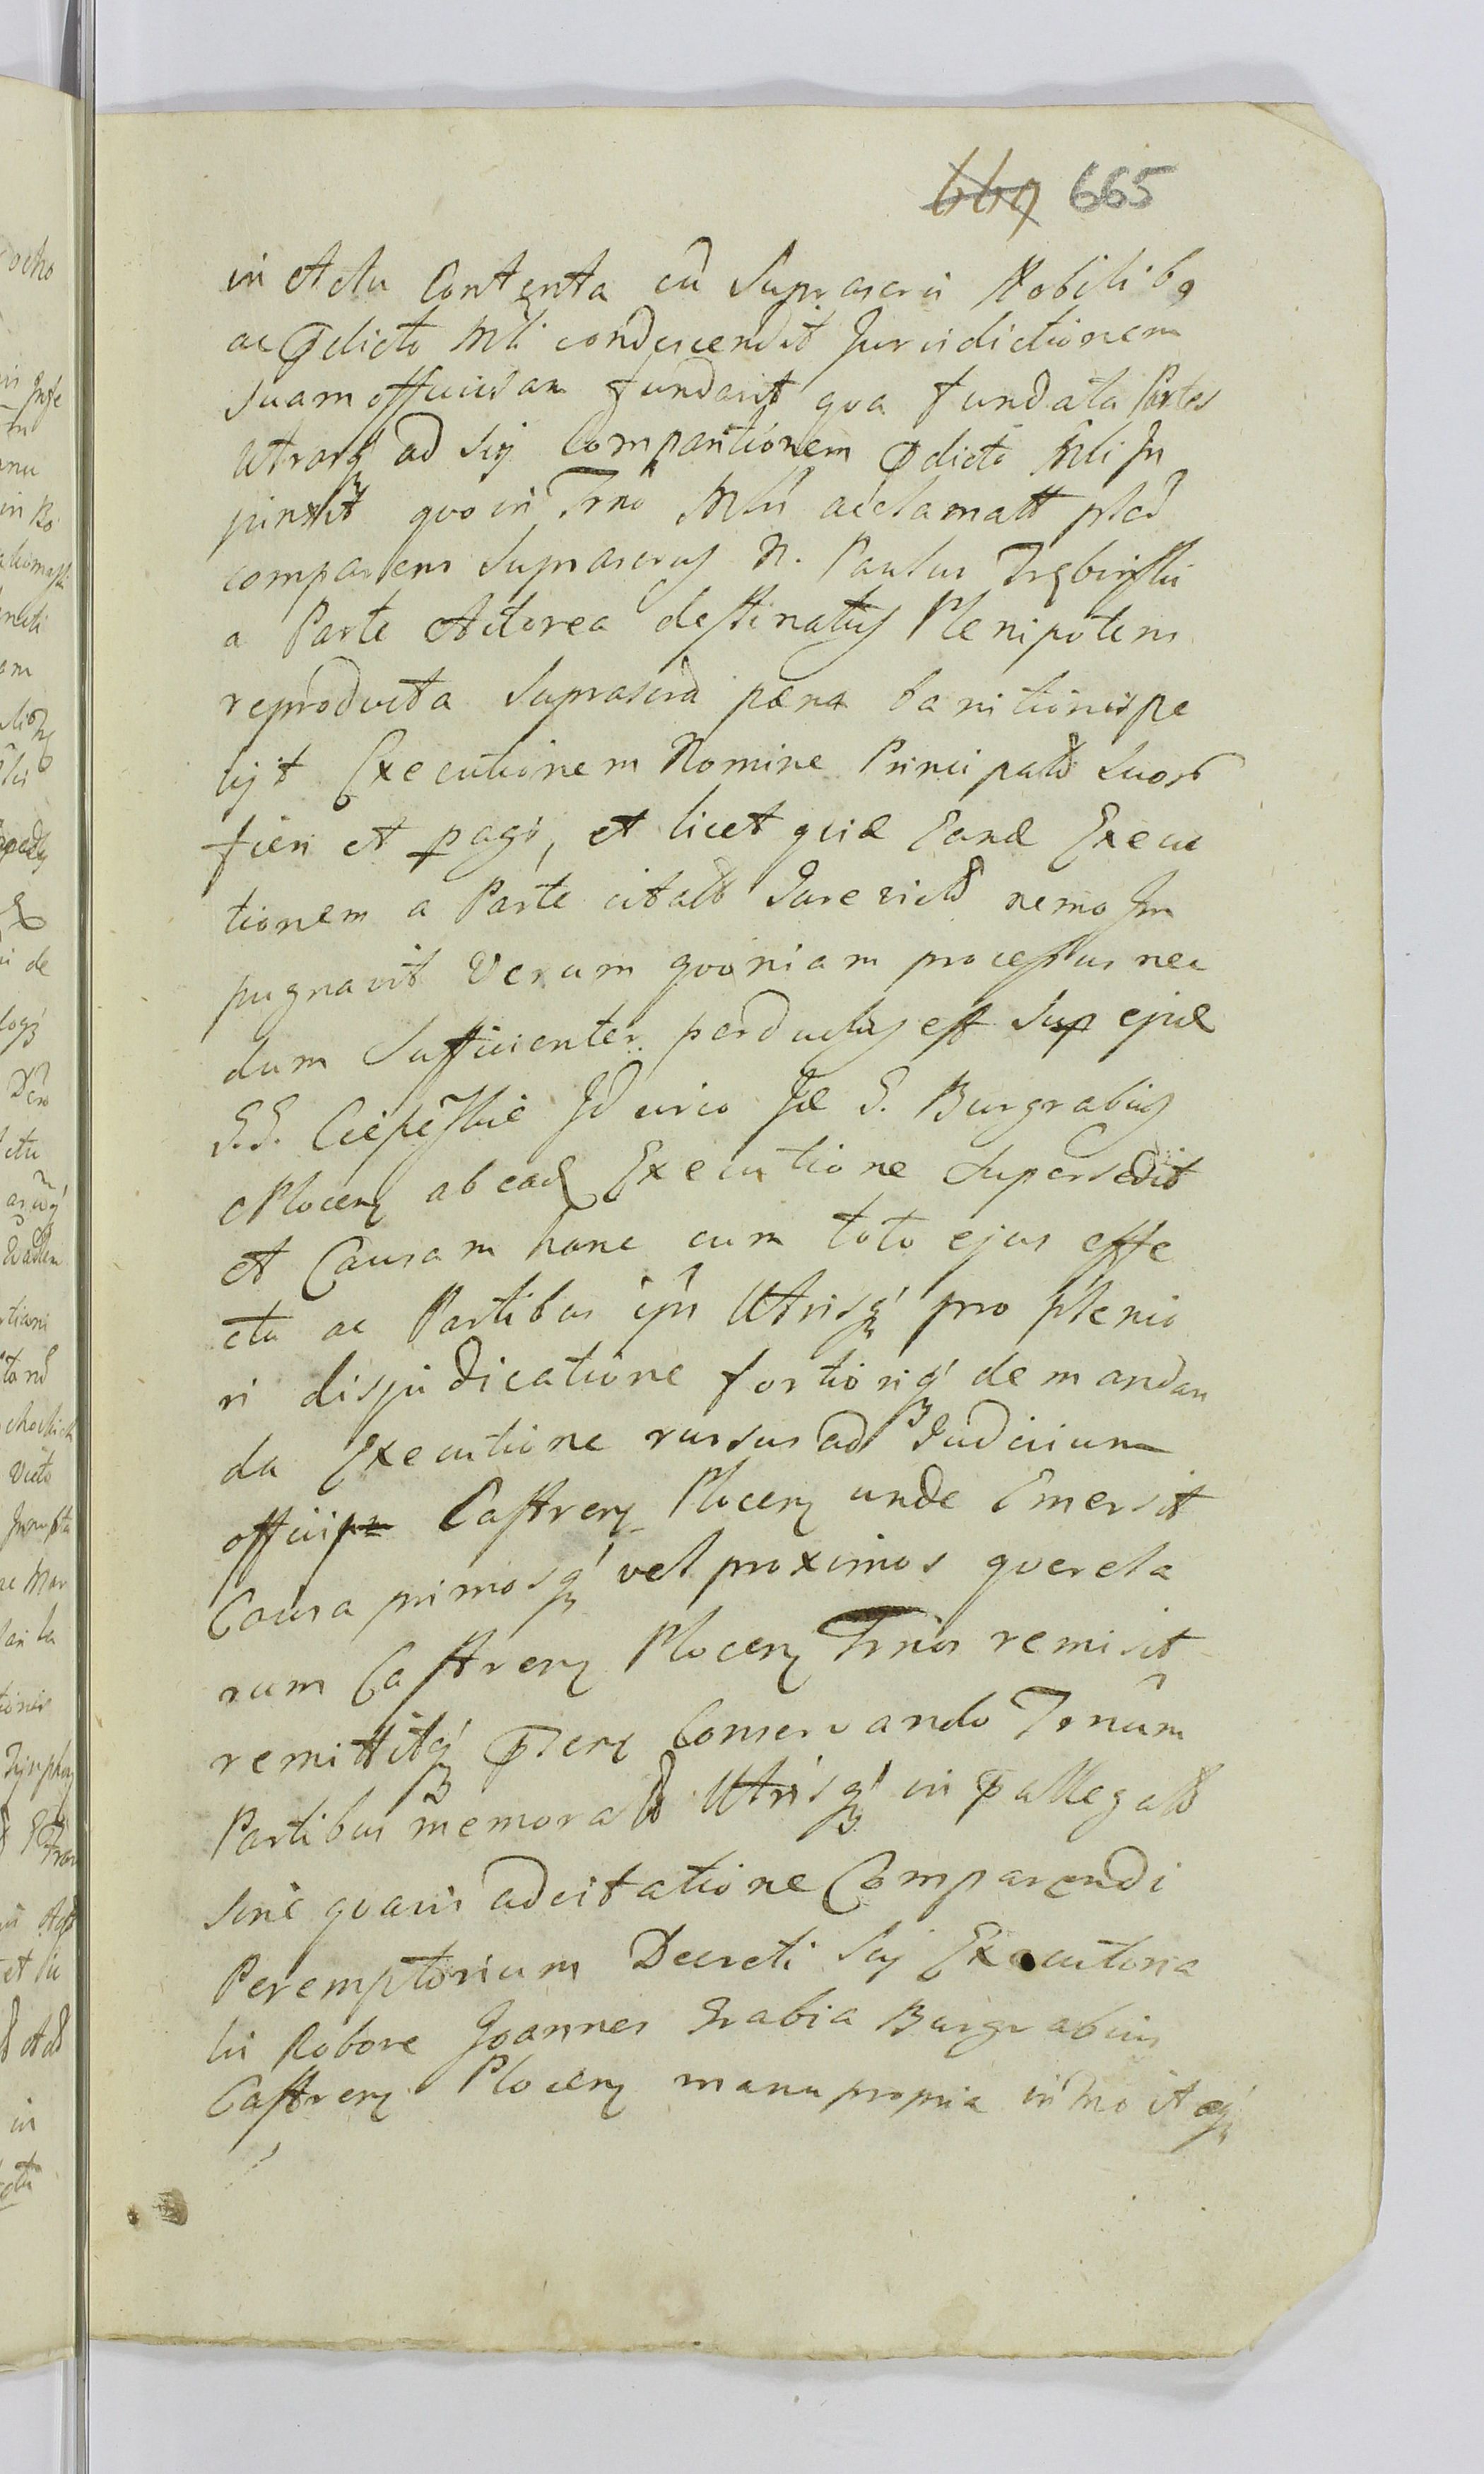 669 665
in Actu Contenta cū Suprascris Nobilibꝯ
ac pdicto Mli condescendit Jurisdictionem
suam officiosam fundavit qva fundata Partes
utrasq́ ad sui Comparitionem pdicto Mli In
junxit qvo in Trno Mlri acclamatt
comparens Suprascrus N. Paulus Trębinski
a Parte Actorea destinatus Plenipotens
reproducta Suprascra pæna banitionis pe
tijt Executionem Nomine Principalȣ Suorȣ
fieri et pagi, et licet qvid Eand Execu
tionem a Parte citatȣ Jurevictȣ nemo Im
pugnavit Verum qvoniam processus nec
dum Sufficienter perductus est Sup ejusd
Id circo Id G. Burgrabius
Plocen ab ead Executione Supersedit
et Causam hanc cum toto ejus effe
ctu ac Partibus ipis Utrisq́ pro plenio
ri disjudicatione fortioriq́ demandan
da Executione rursus ad Judicium
officij Castren Plocen unde Emersit
Causa primosq́ vel proximos qverela
rum Castren Plocen Trnos remisit
remittitq́ pnten Conservando Trnum
Partibus memoratȣ Utrisq́ in pallegatȣ
sine qvavis adcitatione Comparendi
Peremptorium Decreti Sui Executoria
lis Robore Joannes Grabia Burgrabius
Castren Plocen manu propria